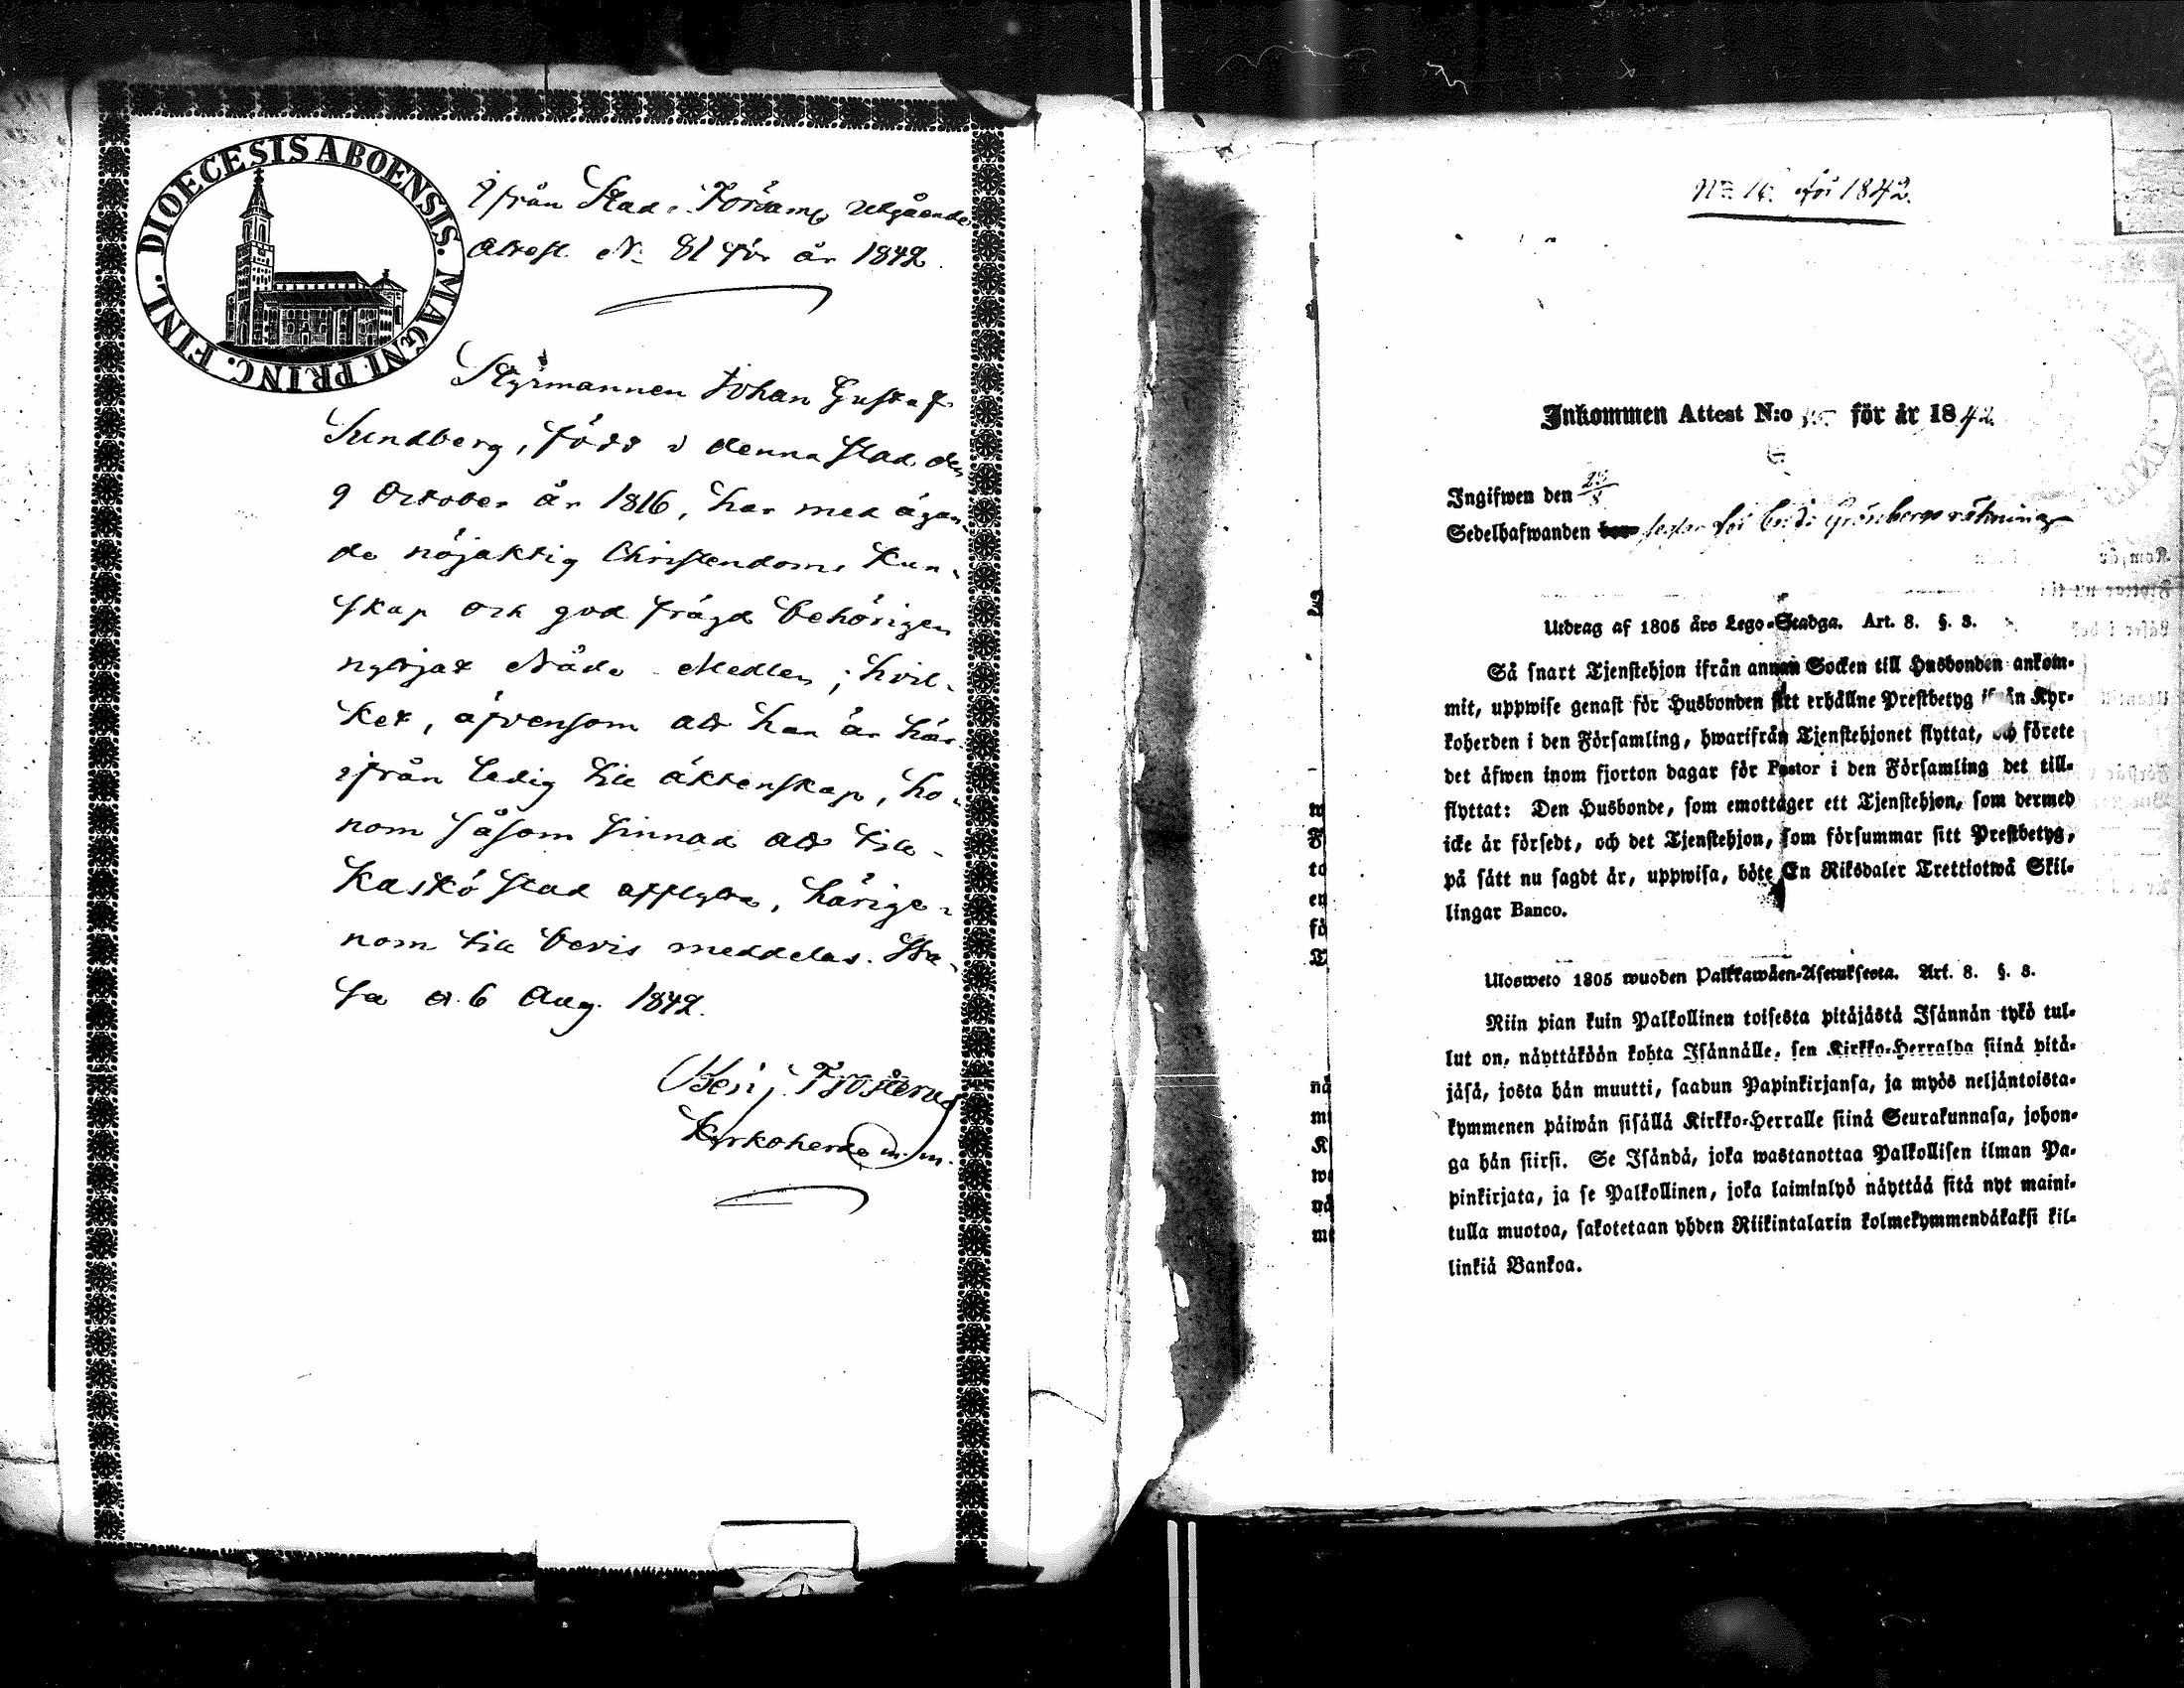 DIOECESIS ABOENSIS. MAGNI PRINC. FINL.
Ifrån Stads Församlg Utgående
Attest. N: 81 för år 1842.
Styrmannen Johan Gustaf
Sundberg, född i denna stad den
9 October år 1816, har med ägan-
de nöjaktig Christendoms Kun-
skap och god frägd behörigen
nyttjat Nåde Medlen; hvil-
ket, äfvensom att han är här-
ifrån ledig till äktenskap, ho-
nom såsom sinnad att till
Kaskö stad afflytta, härige-
nom till bevis meddelas. Wa-
sa d. 6 Aug. 1842.
Benj. Frosterus
Kyrkoherde m. m.
No 16. för 1842.
Inkommen Attest N:o för år 1842.
Ingifwen den
Sedelhafwanden
Utdrag af 1805 års Lego-Stadga. Art. 8. §. 3.
Så snart Tjenstehjon ifrån annan Socken till Husbonden ankom-
mit, uppwise genast för Husbonden sitt erhållne Prestbetyg ifrån Kyr-
koherden i den Församling, hwarifrån Tjenstehjonet flyttat, och förete
det äfwen inom fjorton dagar för Pastor i den Församling det till-
flyttat: Den Husbonde, som emottager ett Tjenstehjon, som dermed
icke är försedt, och det Tjenstehjon, som försummar sitt Prestbetyg,
på sätt nu sagdt är, uppwisa, böte En Riksdaler Trettiotwå Skil-
lingar Banco.
Ulosweto 1805 wuoden Palkkawäen-Asetuksesta. Art. 8. §. 3.
Niin pian kuin Palkollinen toisesta pitäjästä Isännän tykö tul-
lut on, näyttäköön kohta Isännälle, sen Kirkko-Herralda siinä pitä-
jäsä, josta hän muutti, saadun Papinkirjansa, ja myös neljäntoista-
kymmenen päiwän sisällä Kirkko-Herralle siinä Seurakunnasa, johon-
ga hän siirsi. Se Isändä, joka wastanottaa Palkollisen ilman Pa-
pinkirjata, ja se Palkollinen, joka laiminlyö näyttää sitä nyt maini-
tulla muotoa, sakotetaan yhden Riikintalarin kolmekymmendäkaksi kil-
linkiä Bankoa.